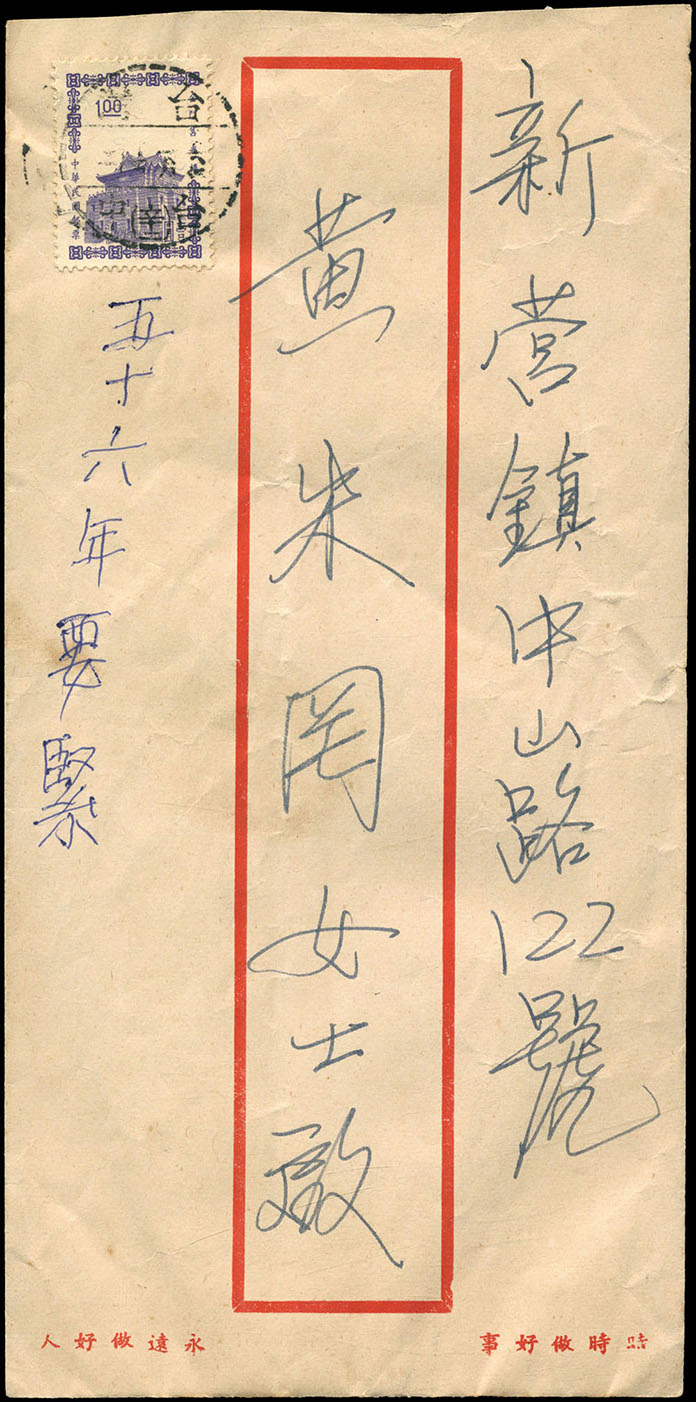 新營鎮中山路122號
黃朱罔女士啟
五十六年要緊
1.00
中華民國郵票
台
台中
(辛)
時時做好事
永遠做好人